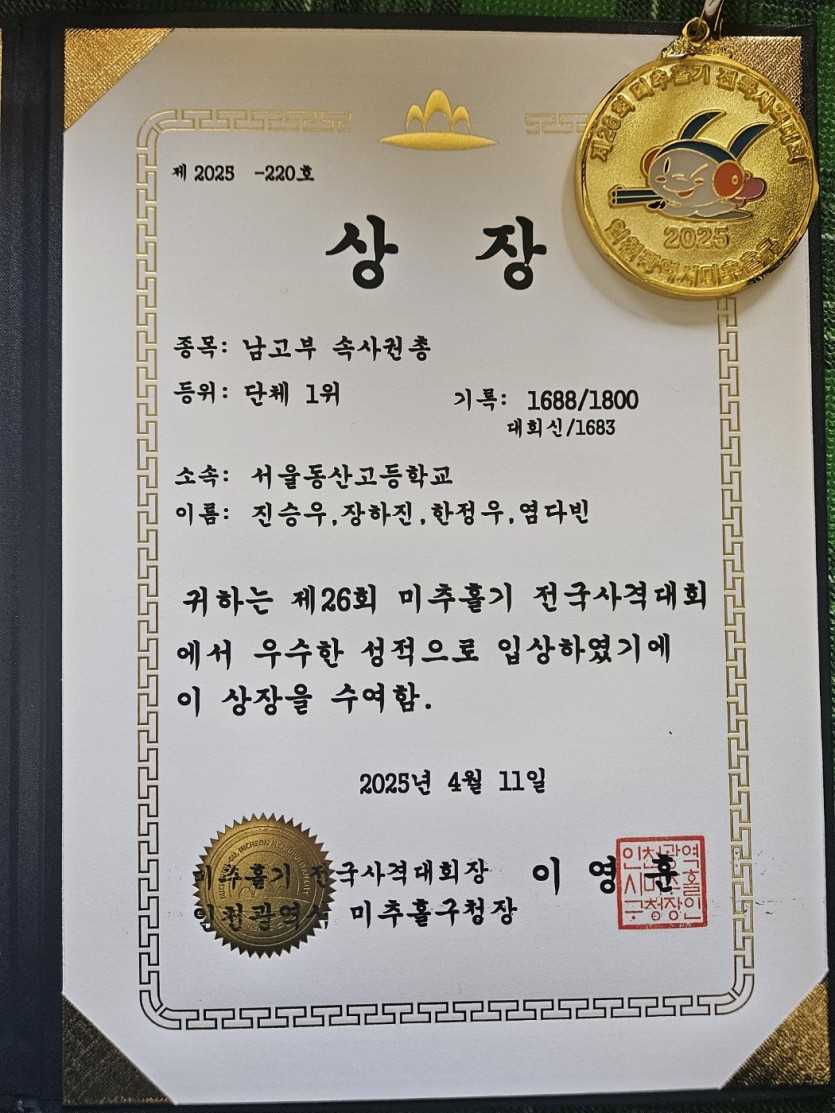 제26회 미추홀기 전국사격대회
2025
인천광역시미추홀구
제 2025 -220호
상 장
종목: 남고부 속사권총
등위: 단체 1위 기록: 1688/1800
대회신/1683
소속: 서울동산고등학교
이름: 진승우,장하진,한정우,염다빈
귀하는 제26회 미추홀기 전국사격대회
에서 우수한 성적으로 입상하였기에
이 상장을 수여함.
2025년 4월 11일
미추홀기 전국사격대회장 이 영 훈
인천광역시 미추홀구청장
인천광역
시미추홀
구청장인